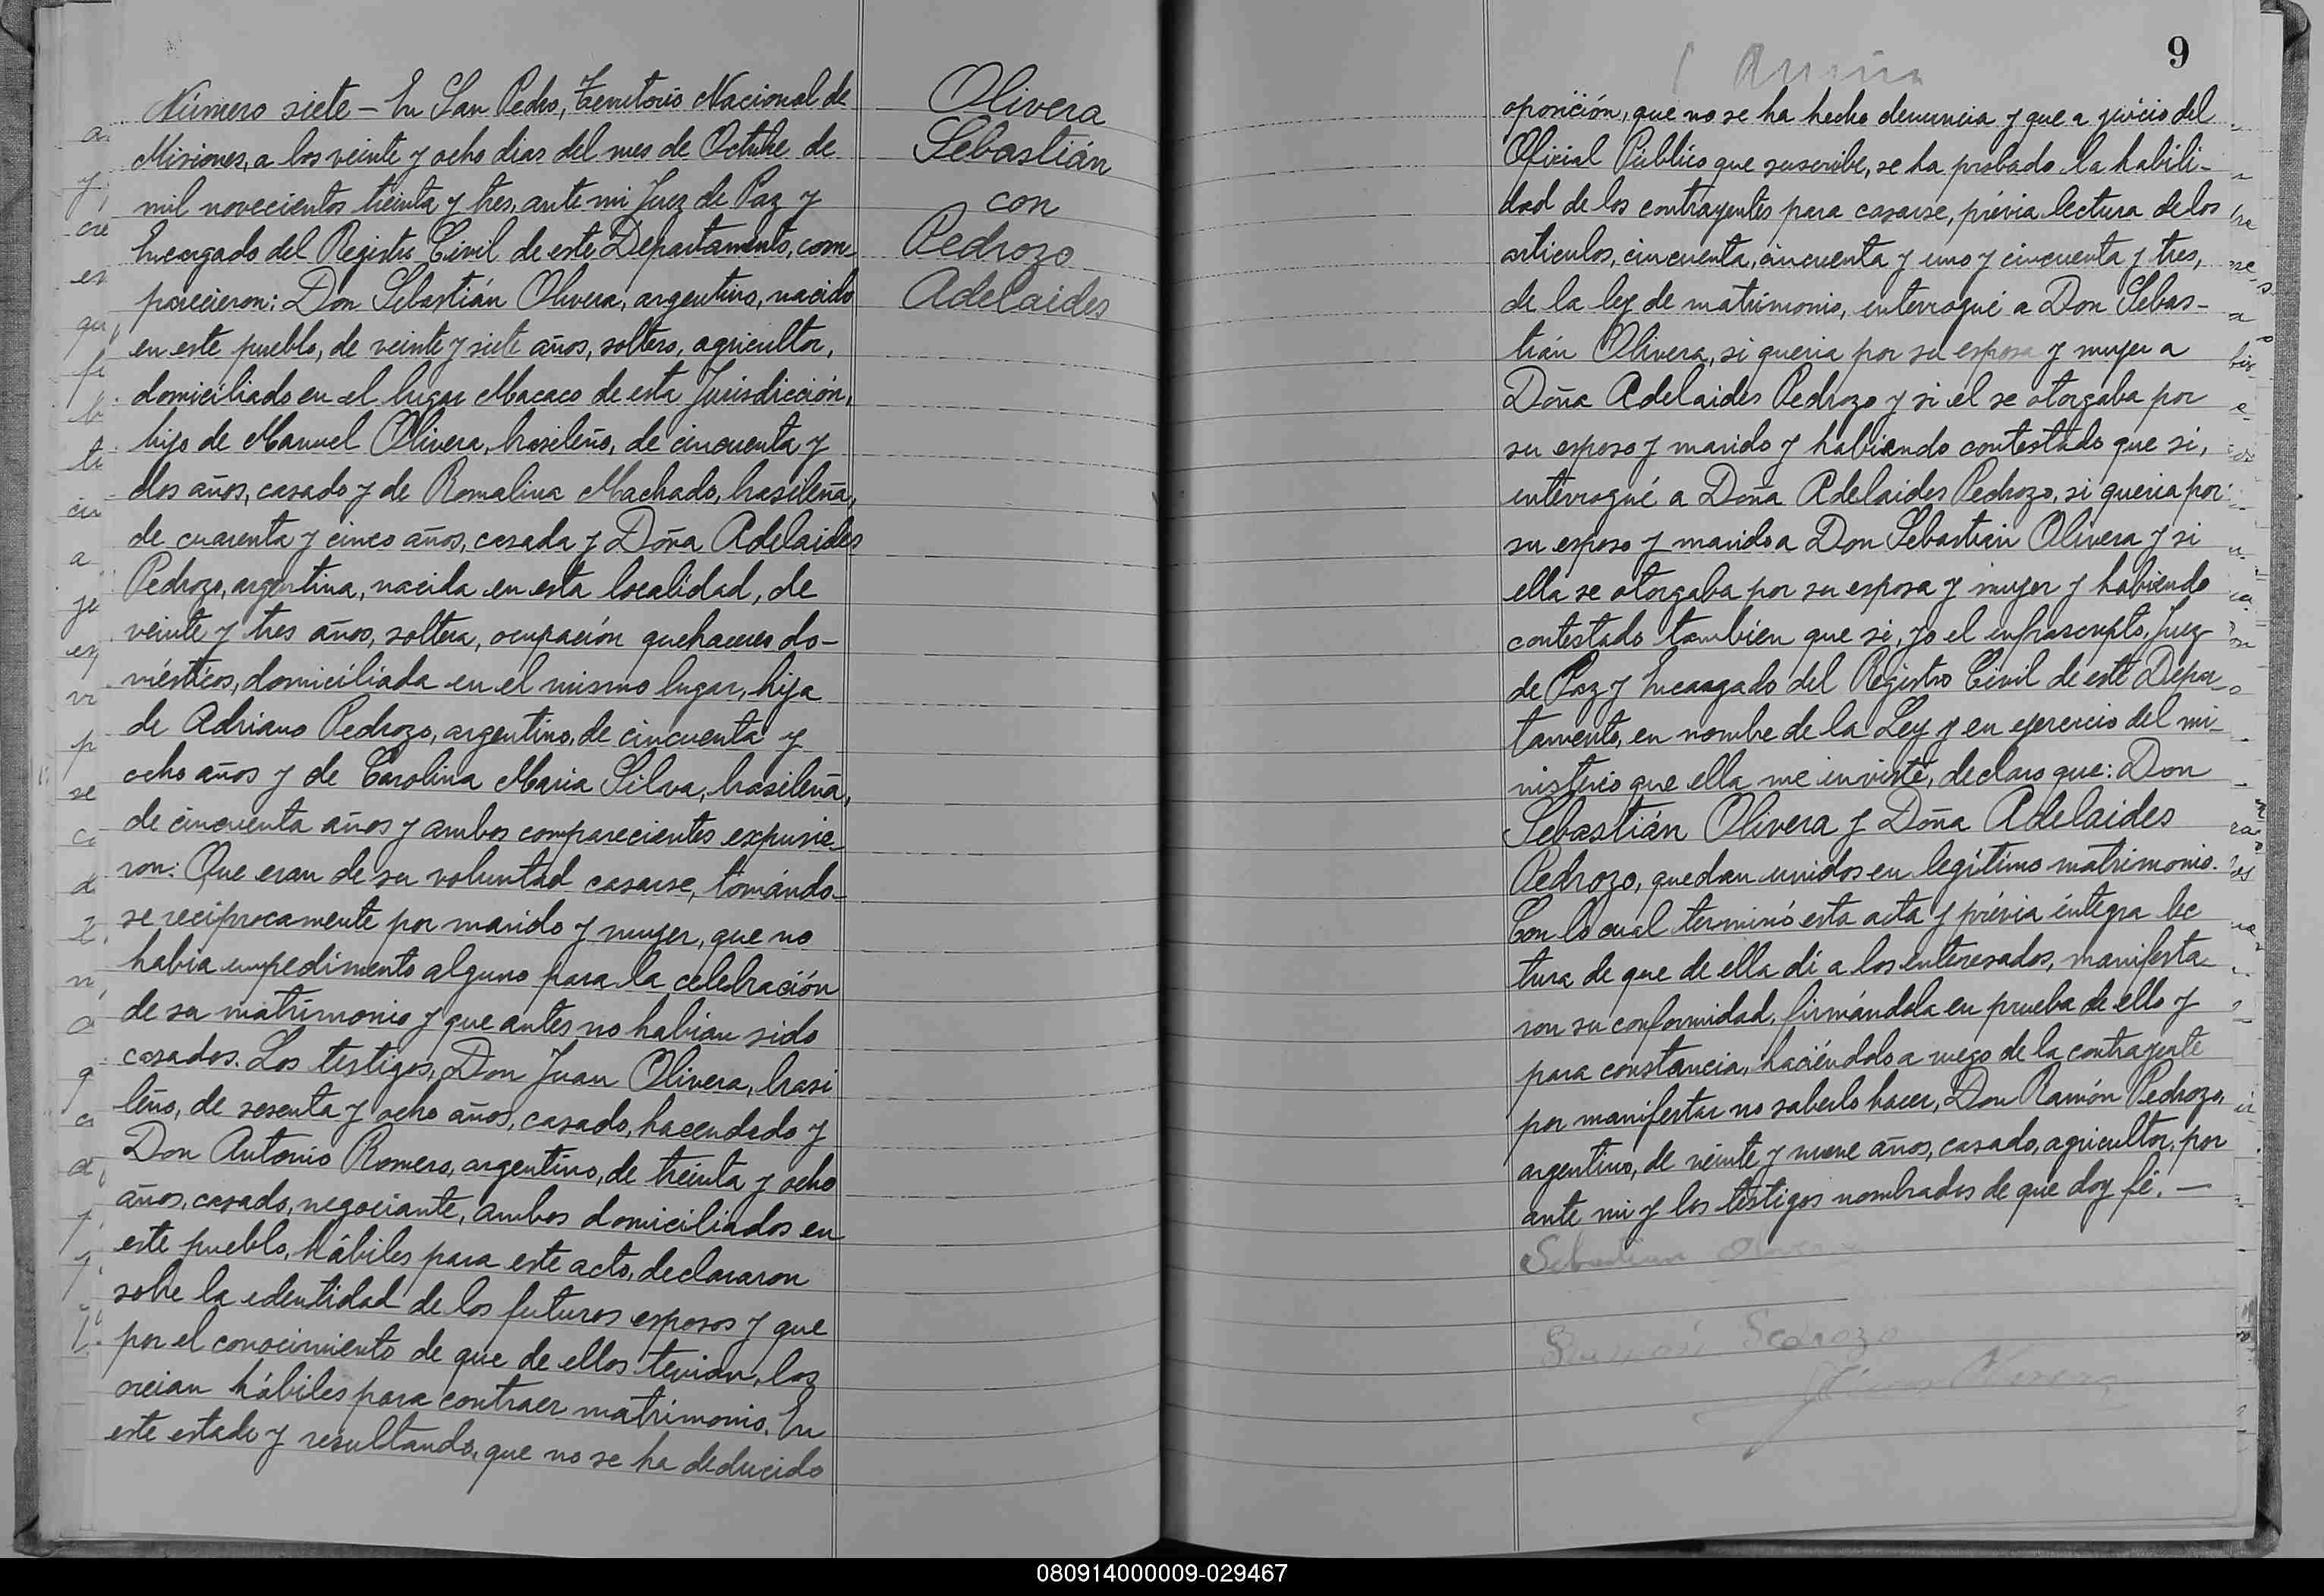 Número siete – En San Pedro, Territorio Nacional de
Misiones, a los veinte y ocho dias del mes de Octubre de
mil novecientos treinta y tres, ante mi Juez de Paz y
Encargado del Registro Civil de este Departamento, com-
parecieron: Don Sebastián Olivera, argentino, nacido
en este pueblo, de veinte y siete años, soltero, agricultor,
domiciliado en el lugar Macaco de esta Jurisdicción,
hijo de Manuel Olivera, brasileño, de cincuenta y
dos años, casado y de Romalina Machado, brasileña,
de cuarenta y cinco años, casada y Doña Adelaides
Pedrozo, argentina, nacida en esta localidad, de
veinte y tres años, soltera, ocupación quehaceres do-
mésticos, domiciliada en el mismo lugar, hija
de Adriano Pedrozo, argentino, de cincuenta y
ocho años y de Carolina Maria Silva, brasileña,
de cincuenta años y ambos comparecientes expusie-
ron: Que eran de su voluntad casarse, tomándo-
se reciprocamente por marido y mujer, que no
habia impedimento alguno para la celebración
de su matrimonio y que antes no habian sido
casados. Los testigos, Don Juan Olivera, brasi
leño, de sesenta y ocho años, casado, hacendado y
Don Antonio Romero, argentino, de treinta y ocho
años, casado, negociante, ambos domiciliados en
este pueblo, hábiles para este acto, declararon
sobre la identidad de los futuros esposos y que
por el conocimiento de que de ellos tenian, los
creian hábiles para contraer matrimonio. En
este estado y resultando, que no se ha deducido
Olivera
Sebastián
con
Pedrozo
Adelaides
9
oposición, que no se ha hecho denuncia y que a juicio del
Oficial Público que suscribe, se ha probado la habili-
dad de los contrayentes para casarse, prévia lectura de los
articulos, cincuenta, cincuenta y uno y cincuenta y tres,
de la ley de matrimonio, interrogué a Don Sebas-
tián Olivera, si queria por su esposa y mujer a
Doña Adelaides Pedrozo y si el se otorgaba por
su esposo y marido y habiendo contestado que si,
interrogué a Doña Adelaides Pedrozo, si queria por
su esposo y marido a Don Sebastián Olivera y si
ella se otorgaba por su esposa y mujer y habiendo
contestado tambien que si, yo el infrascripto, Juez
de Paz y Encargado del Registro Civil de este Depar-
tamento, en nombre de la Ley y en ejercicio del mi-
nisterio que ella me inviste, declaro que: Don
Sebastián Olivera y Doña Adelaides
Pedrozo, quedan unidos en legítimo matrimonio.
Con lo cual terminó esta acta y prévia íntegra lec
tura de que de ella dí a los interesados, manifesta-
ron su conformidad, firmándola en prueba de ello y
para constancia, haciéndolo a ruego de la contrayente
por manifestar no saberlo hacer, Don Ramón Pedrozo,
argentino, de veinte y nueve años, casado, agricultor, por
ante mi y los testigos nombrados de que doy fé. –
Sebastian Olivera
Ramón Pedrozo
Olivera
080914000009-029467